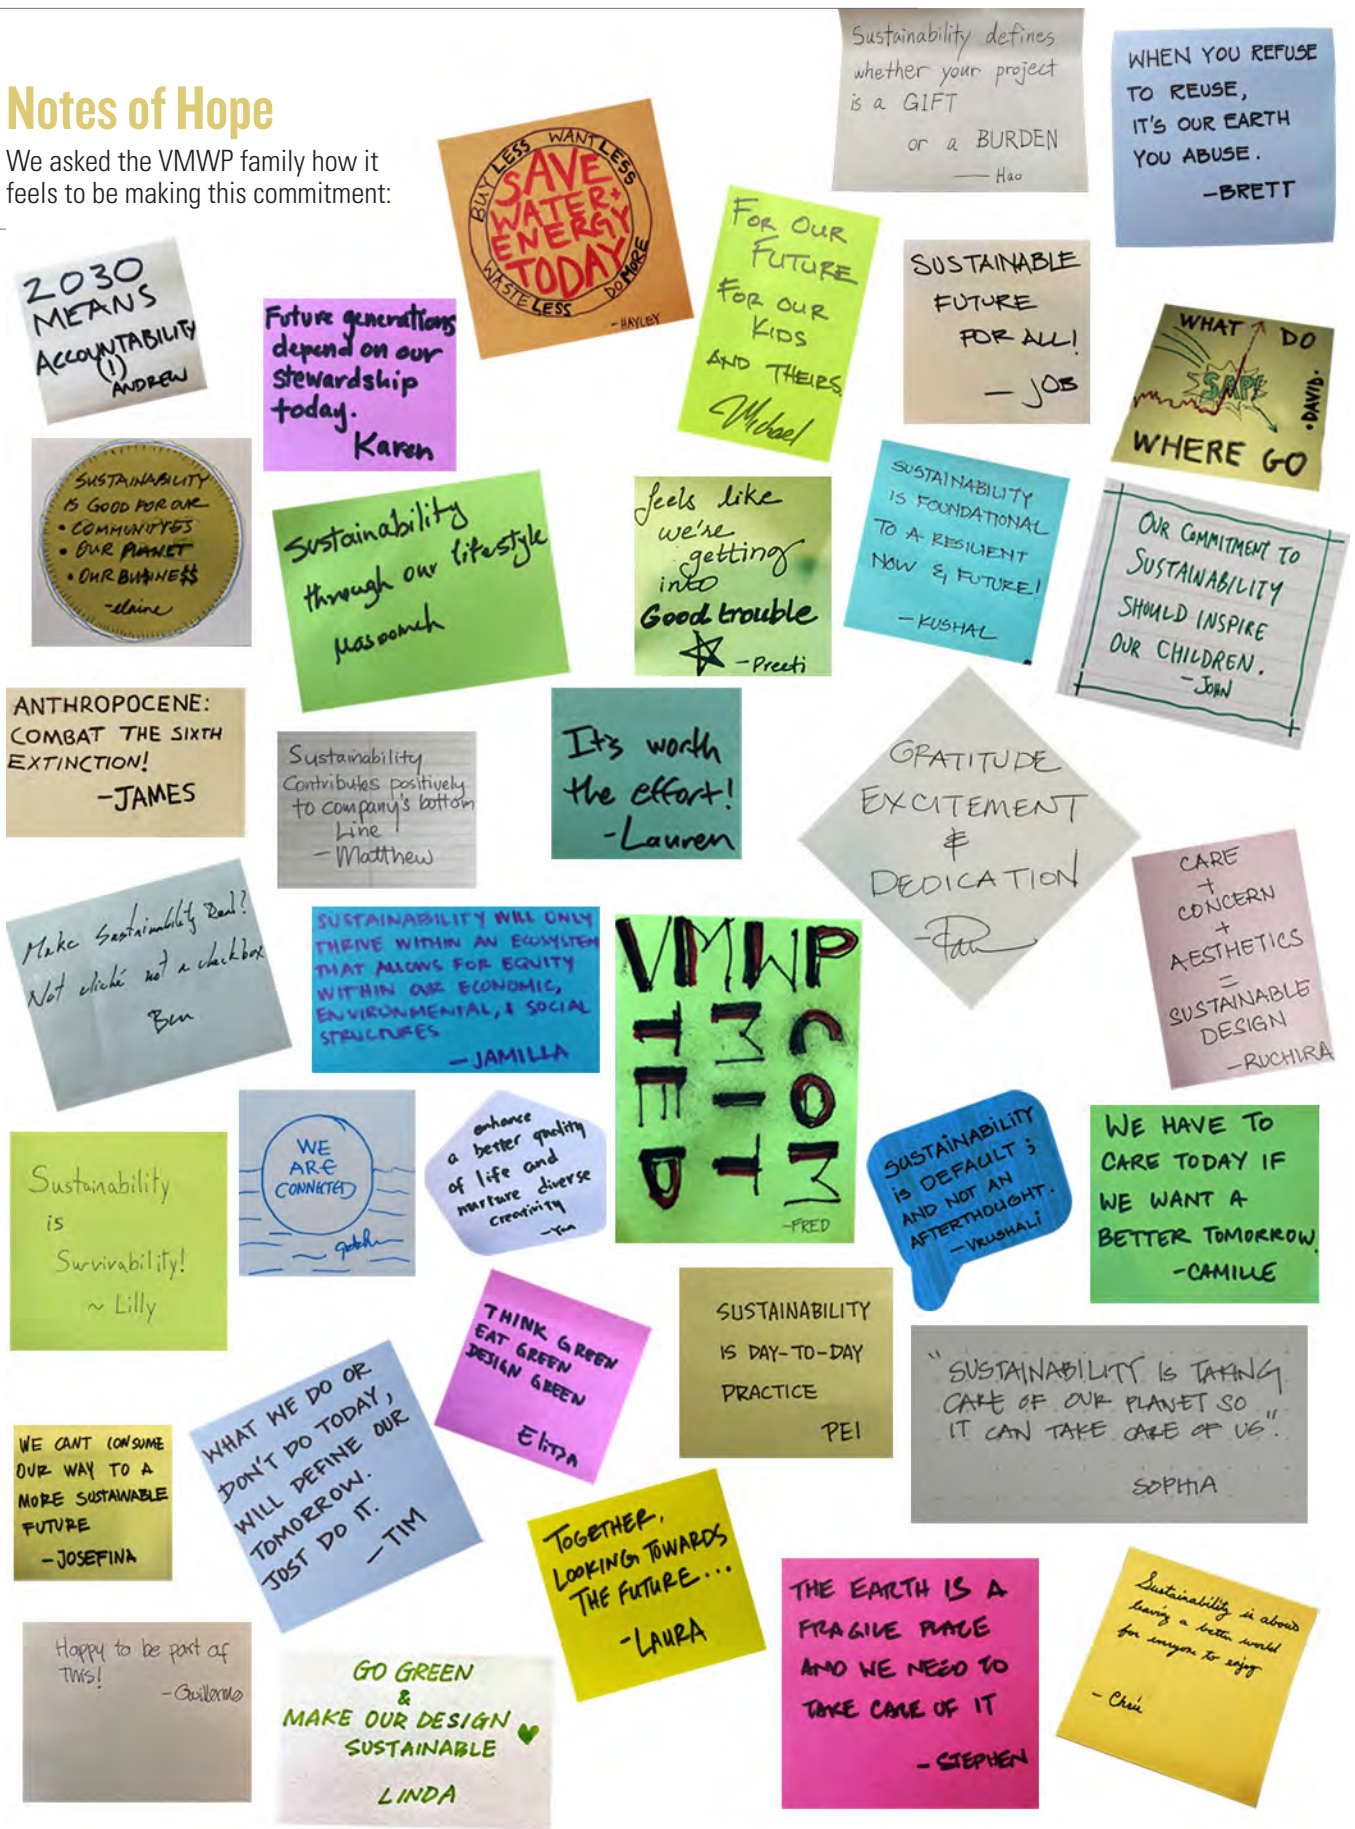 Notes of Hope
We asked the VMWP family how it
feels to be making this commitment:
Sustainability defines
whether your project
is a GIFT
or a BURDEN
— Hao
WHEN YOU REFUSE
TO REUSE,
IT'S OUR EARTH
YOU ABUSE.
-BRETT
BUY LESS WANT LESS
SAVE
WATER+
ENERGY
TODAY
WASTE LESS DO MORE
-HAYLEY
FOR OUR
FUTURE
FOR OUR
KIDS
AND THEIRS.
Michael
SUSTAINABLE
FUTURE
FOR ALL!
— JOB
2030
MEANS
ACCOUNTABILITY
(!)
ANDREW
Future generations
depend on our
stewardship
today.
Karen
WHAT DO
WHERE GO
•DAVID•
SUSTAINABILITY
IS GOOD FOR OUR
• COMMUNITYES
• OUR PLANET
• OUR BUSINE$$
-elaine
Sustainability
through our lifestyle
Masoomeh
feels like
we're
getting
into
Good trouble
-Preeti
SUSTAINABILITY
IS FOUNDATIONAL
TO A RESILIENT
NOW & FUTURE!
- KUSHAL
OUR COMMITMENT TO
SUSTAINABILITY
SHOULD INSPIRE
OUR CHILDREN.
-JOHN
ANTHROPOCENE:
COMBAT THE SIXTH
EXTINCTION!
-JAMES
Sustainability
Contributes positively
to company's bottom
Line
- Matthew
It's worth
the effort!
-Lauren
GRATITUDE
EXCITEMENT
&
DEDICATION
CARE
+
CONCERN
+
AESTHETICS
=
SUSTAINABLE
DESIGN
-RUCHIRA
Make Sustainability Real?
Not cliché not a checkbox
Ben
SUSTAINABILITY WILL ONLY
THRIVE WITHIN AN ECOSYSTEM
THAT ALLOWS FOR EQUITY
WITHIN OUR ECONOMIC,
ENVIRONMENTAL, & SOCIAL
STRUCTURES
- JAMILLA
VMWP
COM
MIT
TED
-FRED
Sustainability
is
Survivability!
~ Lilly
WE
ARE
CONNECTED
enhance
a better quality
of life and
nurture diverse
creativity
-Yan
SUSTAINABILITY
is DEFAULT ;
AND NOT AN
AFTERTHOUGHT.
- VRUSHALI
WE HAVE TO
CARE TODAY IF
WE WANT A
BETTER TOMORROW.
-CAMILLE
THINK GREEN
EAT GREEN
DESIGN GREEN
Elitza
SUSTAINABILITY
IS DAY-TO-DAY
PRACTICE
PEI
"SUSTAINABILITY IS TAKING
CARE OF OUR PLANET SO
IT CAN TAKE CARE OF US".
SOPHIA
WE CANT CONSUME
OUR WAY TO A
MORE SUSTAINABLE
FUTURE
- JOSEFINA
WHAT WE DO OR
DON'T DO TODAY,
WILL DEFINE OUR
TOMORROW.
JUST DO IT.
- TIM
TOGETHER,
LOOKING TOWARDS
THE FUTURE...
-LAURA
THE EARTH IS A
FRAGILE PLACE
AND WE NEED TO
TAKE CARE OF IT
- STEPHEN
Sustainability is about
leaving a better world
for everyone to enjoy
- Chris
Happy to be part of
This!
- Guillermo
GO GREEN
&
MAKE OUR DESIGN
SUSTAINABLE
LINDA